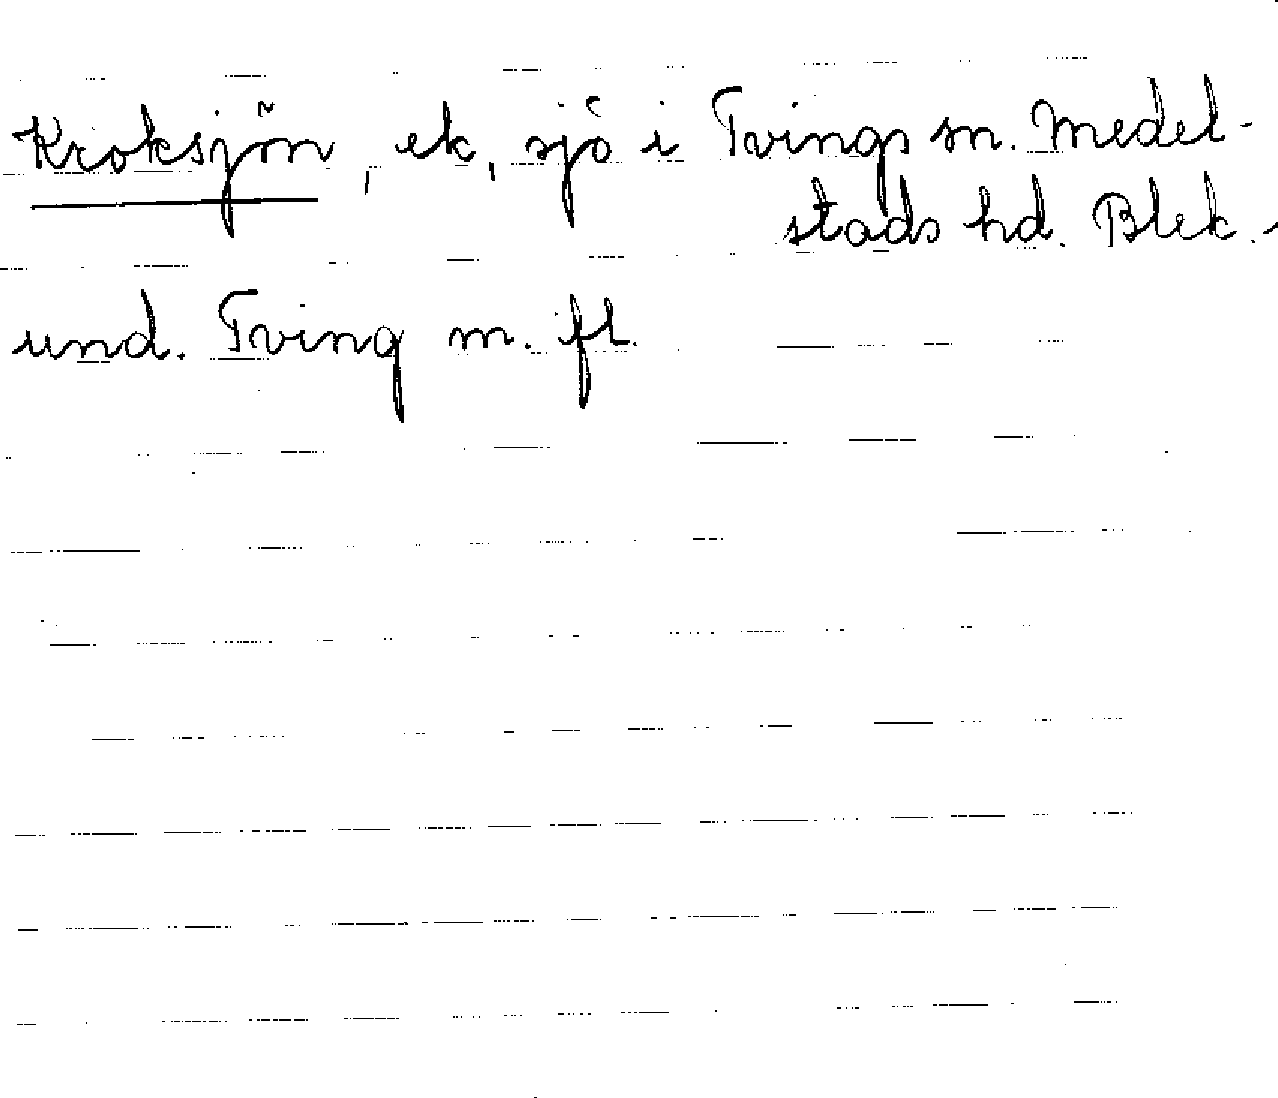 Kroksjön, ek, sjö i Tvings sn. Medel-
stads hd. Blek.
und. Tving m. fl.